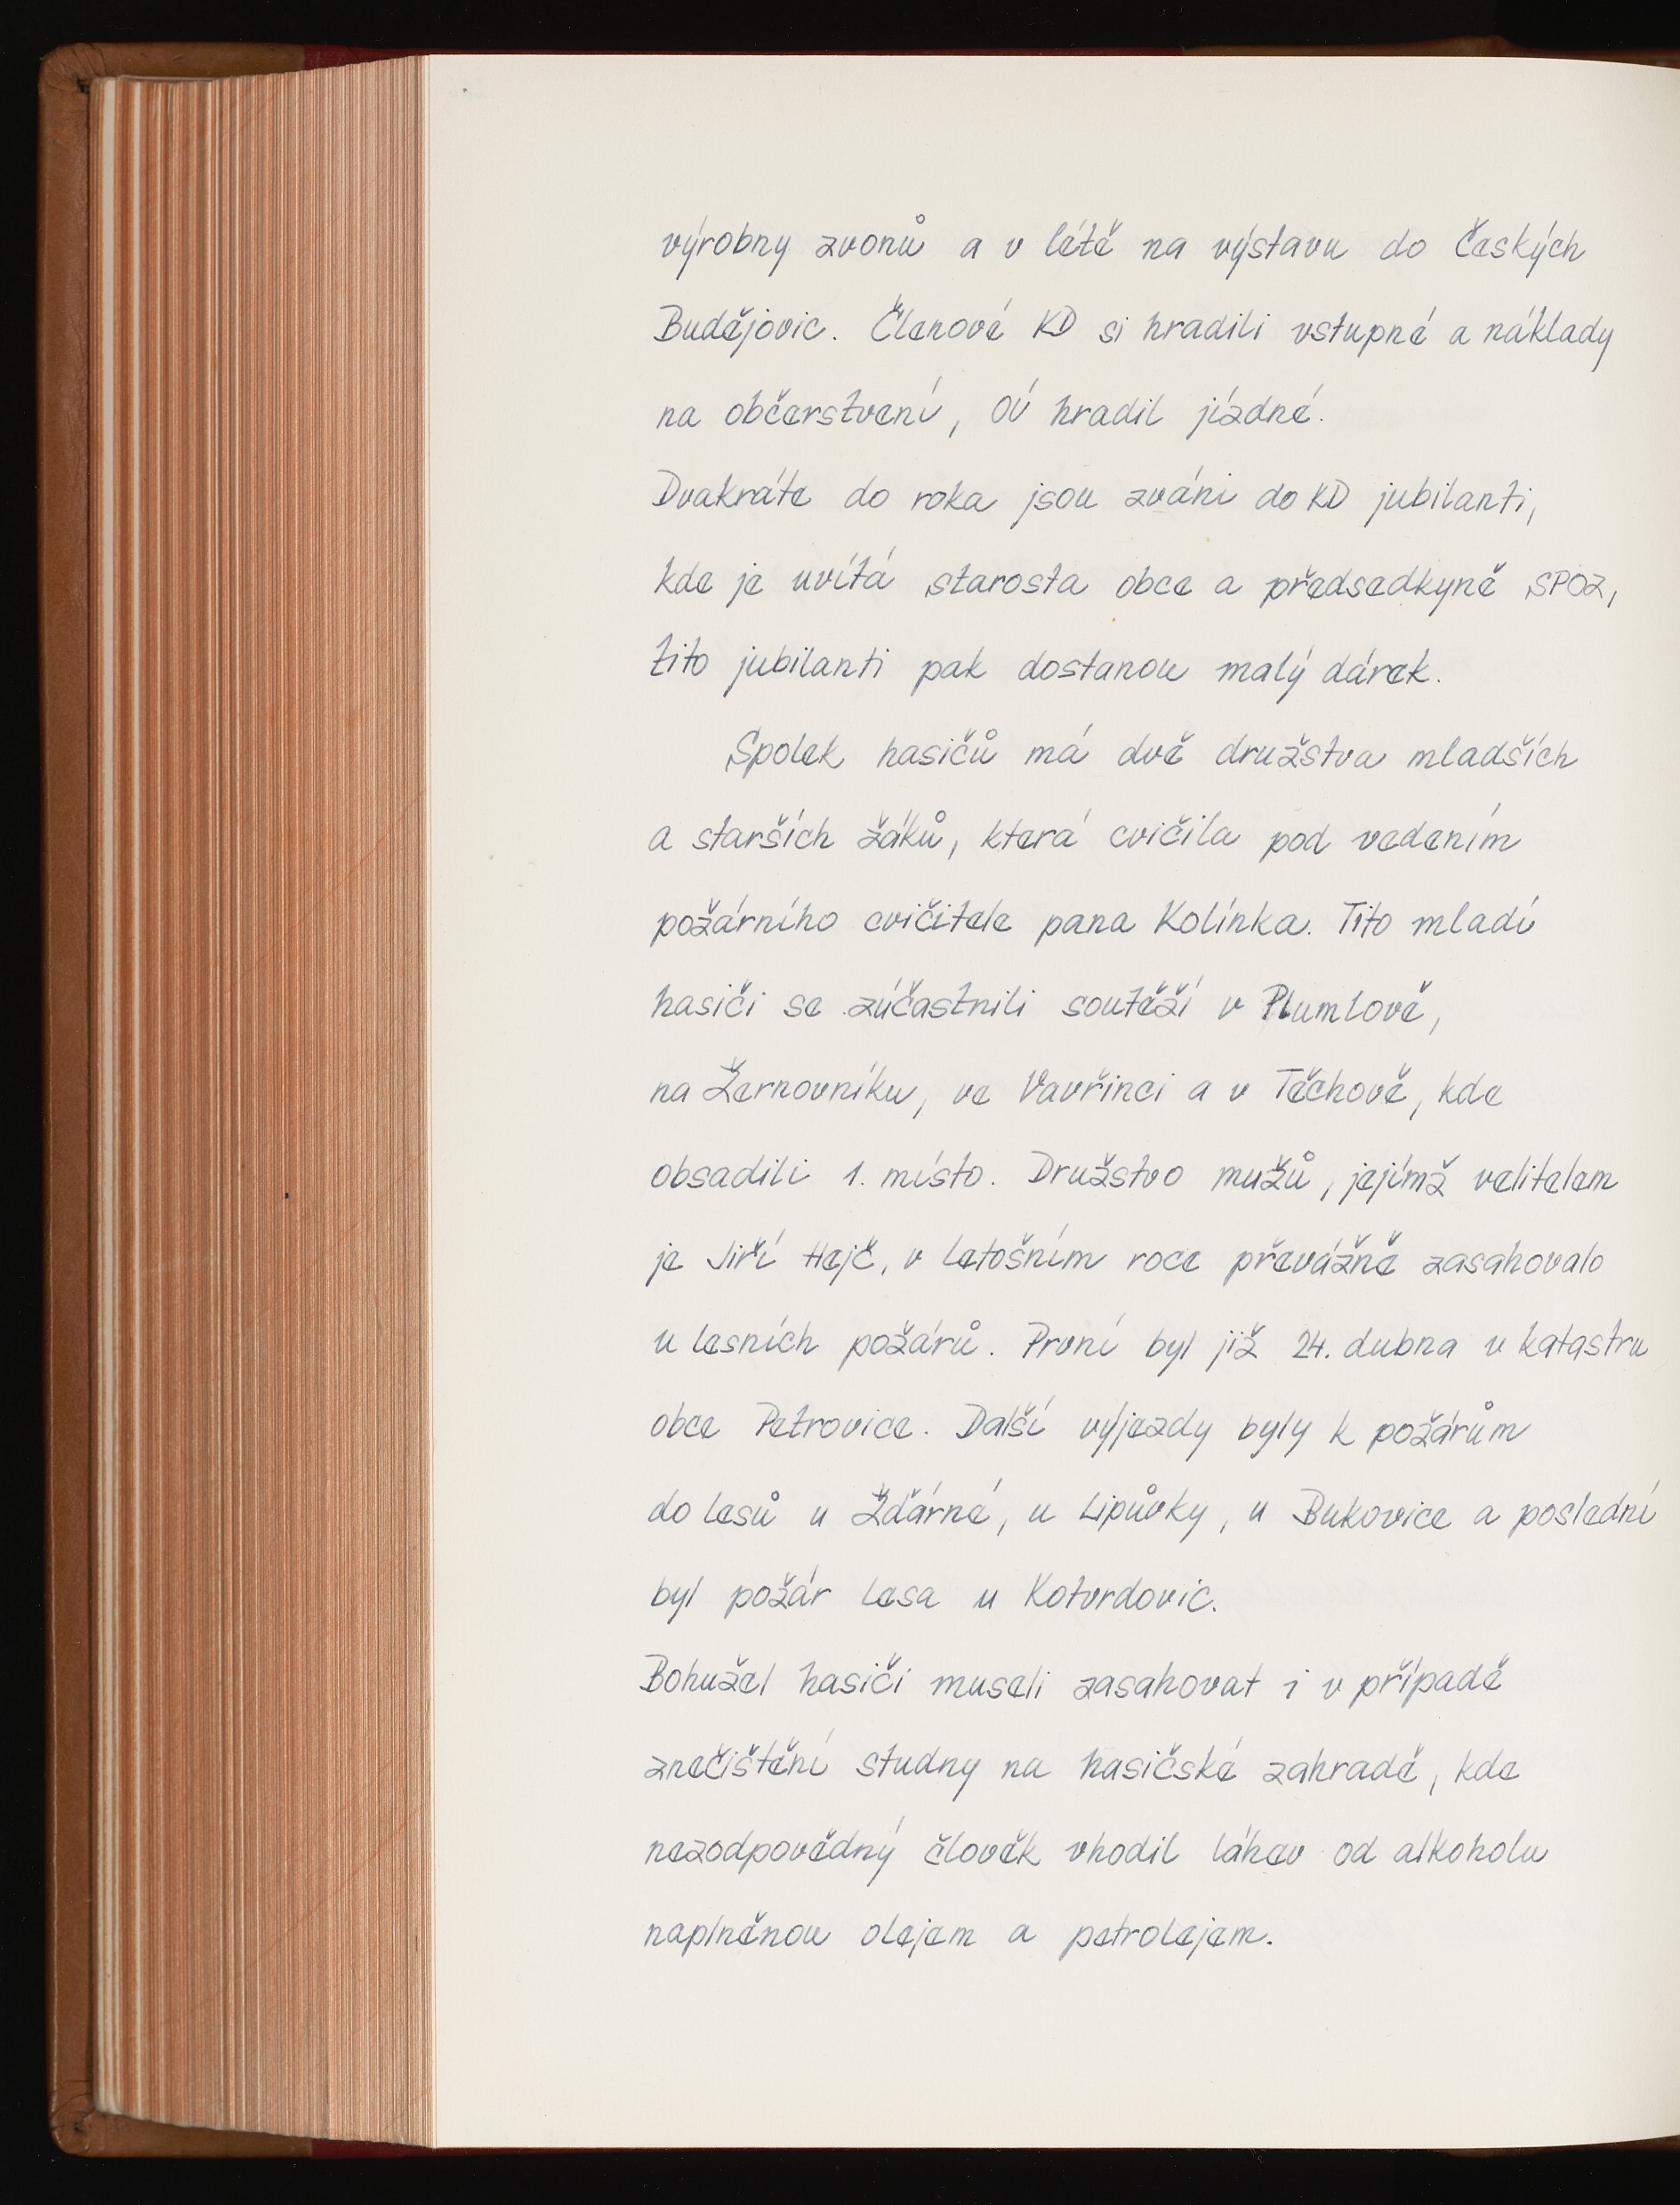 výrobny zvonů a v létě na výstavu do Českých
Budějovic. Členové KD si hradili vstupné a náklady
na občerstvení, OÚ hradil jízdné.
Dvakráte do roka jsou zváni do KD jubilanti,
kde je uvítá starosta obce a předsedkyně SPOZ,
tito jubilanti pak dostanou malý dárek.
Spolek hasičů má dvě družstva mladších
a starších žáků, která cvičila pod vedením
požárního cvičitele pana Kolínka. Tito mladí
hasiči se zúčastnili soutěží v Plumlově,
na Žernovníku, ve Vavřinci a v Těchově, kde
obsadili 1. místo. Družstvo mužů, jejímž velitelem
je Jiří Hejč, v letošním roce převážně zasahovalo
u lesních požárů. První byl již 24. dubna v katastru
obce Petrovice. Další výjezdy byly k požárům
do lesů u Žďárné, u Lipůvky, u Bukovice a poslední
byl požár lesa u Kotvrdovic.
Bohužel hasiči museli zasahovat i v případě
znečištění studny na hasičské zahradě, kde
nezodpovědný člověk vhodil láhev od alkoholu
naplněnou olejem a petrolejem.